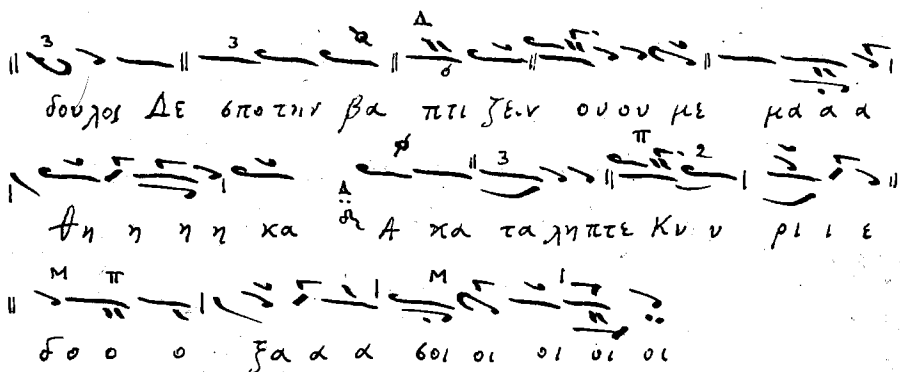 δουλος Δε σπο την βα πτι ζειν ου ου με μα α α α
θη η η η κα Α κα τα ληπτε Κυ υ ρι ι ε
δο ο ο ξα α α α σοι οι οι οι οι